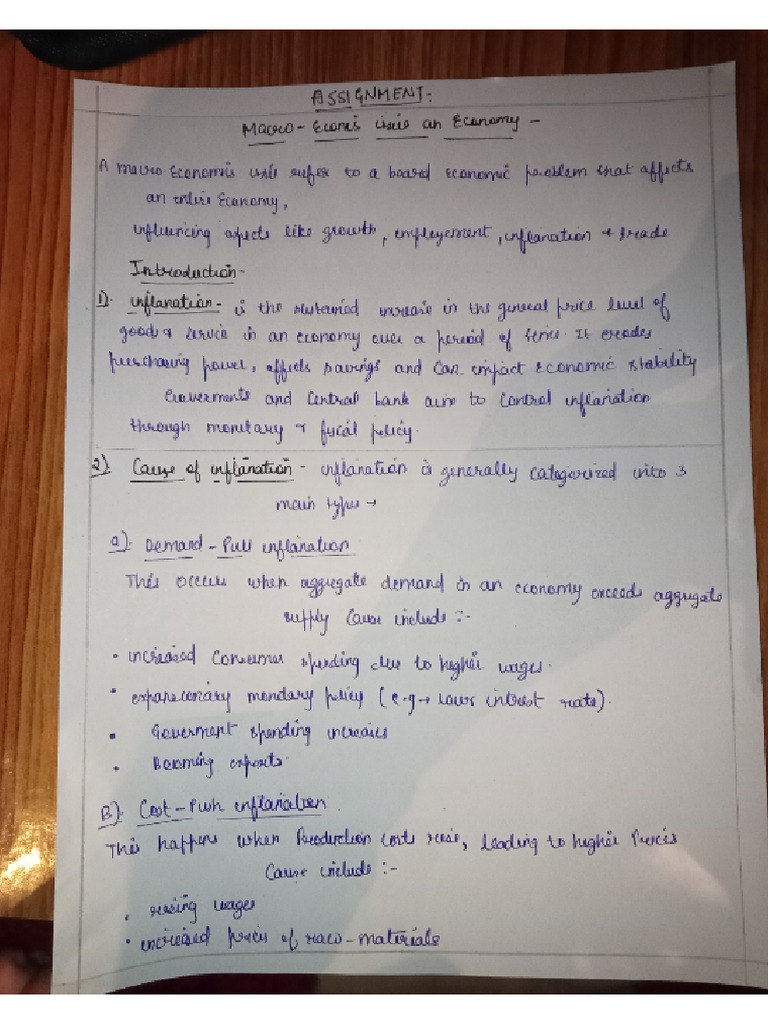 ASSIGNMENT:
Macro - Econis issue an Economy -
A macro Economis issue refer to a board economic problem that affects
an entire Economy,
influencing aspects like growth, employement, inflanation & trade
Introduction -
1). inflanation - is the sustained increase in the general price level of
good & service in an economy over a period of time. It erodes
purchasing power, affects savings and can impact Economic stability
Goverments and Central bank aim to Control inflanation
through monetary & fiscal policy.
2) Cause of inflanation - inflanation is generally categorized into 3
main types →
a). Demand - Pull inflanation
This occurs when aggregate demand in an economy exceeds aggregate
supply Cause include :-
• increased Consumer spending due to higher wages.
• expansionary monetary policy (e.g → lower interest rate).
• Goverment spending increases
• Booming exports.
B). Cost - Push inflanation
This happens when Production costs rise, leading to higher Prices
Cause include :-
• rising wages
• increased prices of raw - materials